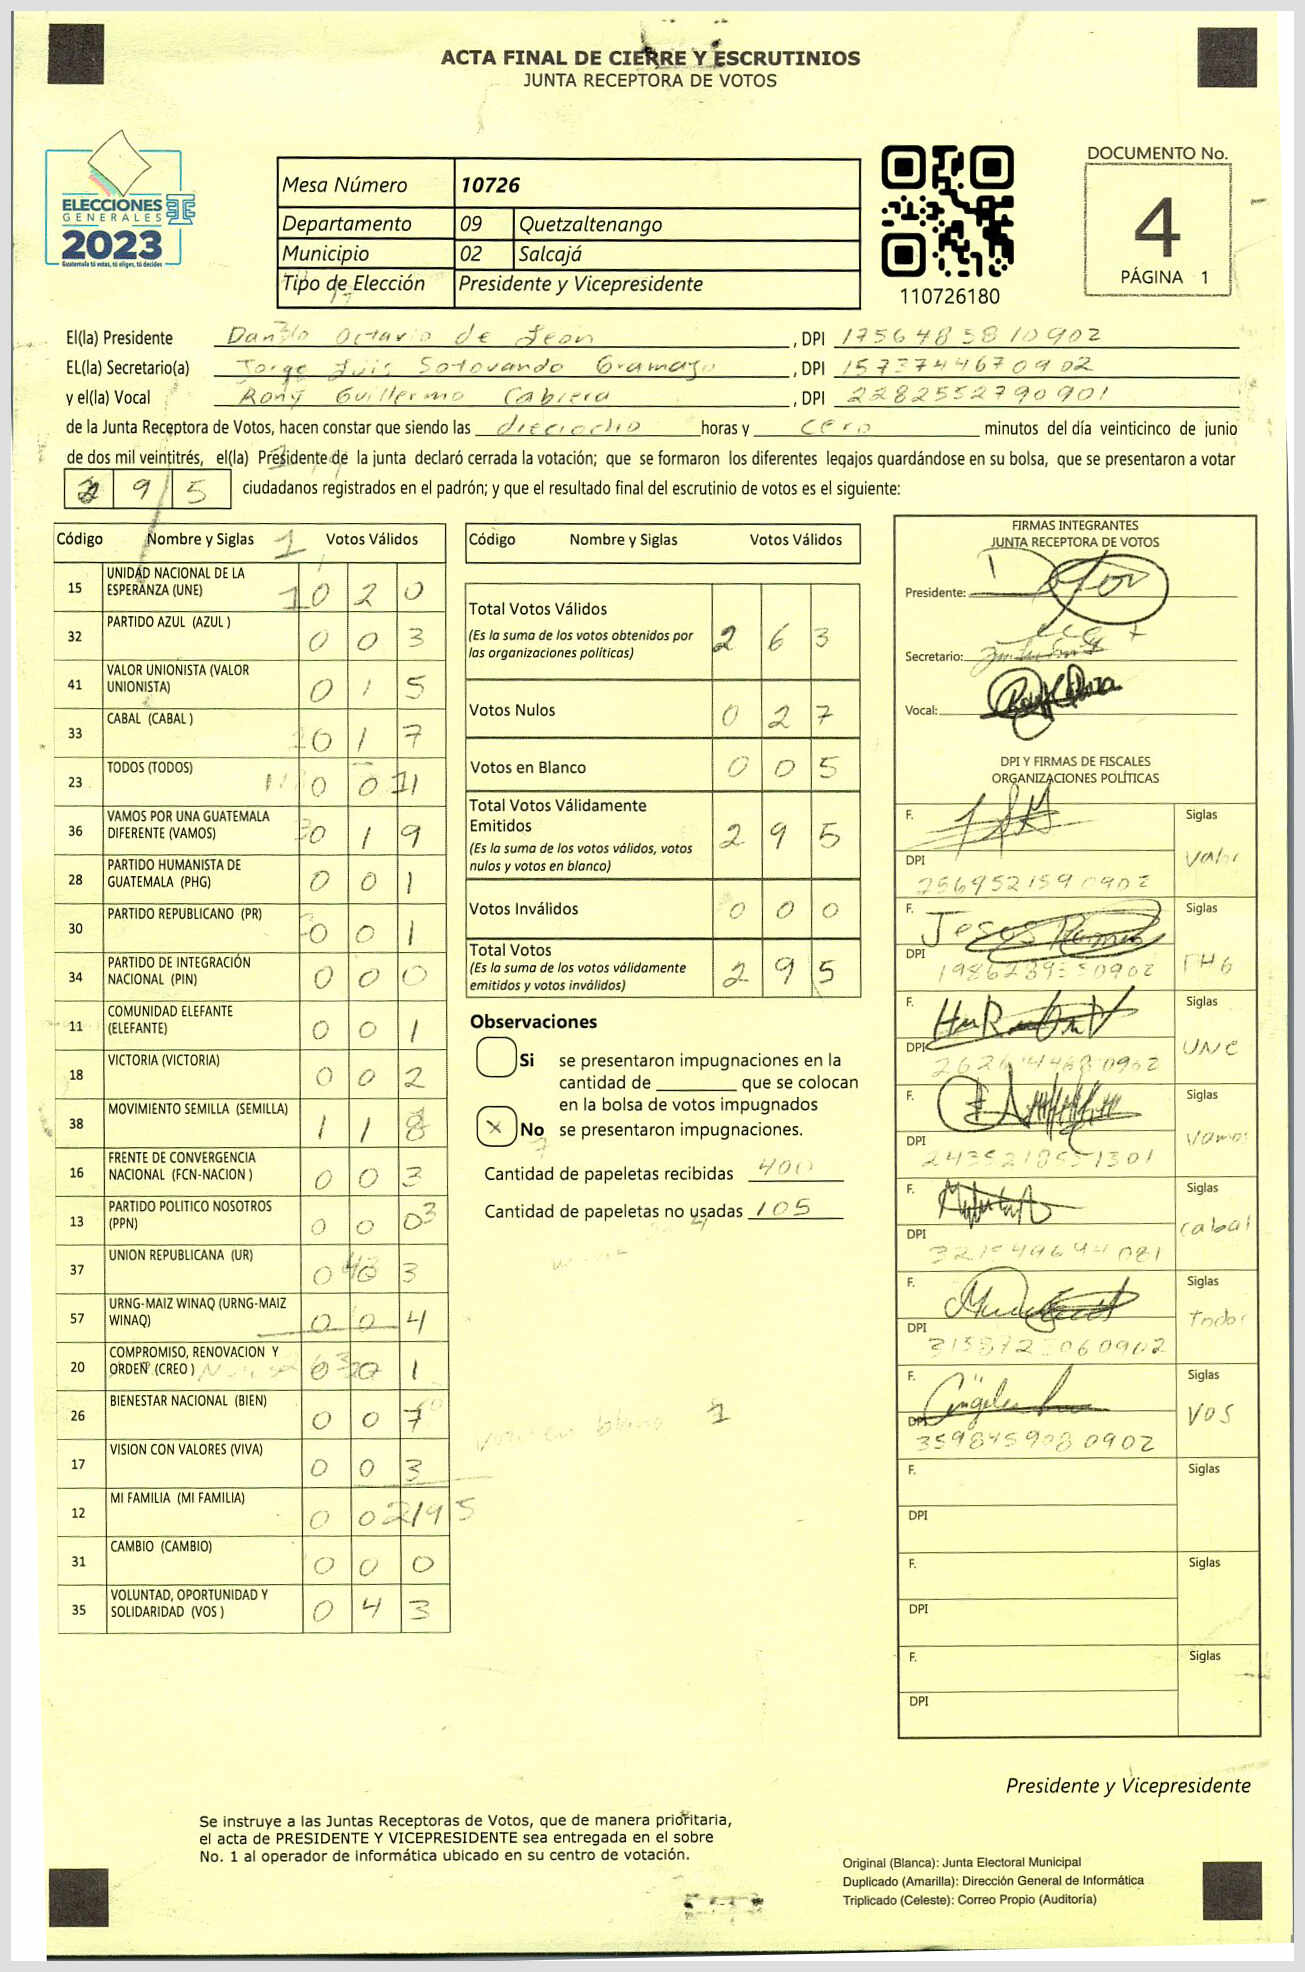 ACTA FINAL DE CIERRE Y ESCRUTINIOS
JUNTA RECEPTORA DE VOTOS
ELECCIONES
GENERALES
2023
Guatemala tú votas, tú eliges, tú decides
Mesa Número 10726
Departamento 09 Quetzaltenango
Municipio 02 Salcajá
Tipo de Elección Presidente y Vicepresidente
110726180
DOCUMENTO No.
4
PÁGINA 1
El(la) Presidente Danilo Octavio de Leon, DPI 1756483810902
EL(la) Secretario(a) Jorge Luis Sotovando Gramajo, DPI 1573744670902
y el(la) Vocal Rony Guillermo Cabrera, DPI 2282552790901
de la Junta Receptora de Votos, hacen constar que siendo las dieciocho horas y cero minutos del día veinticinco de junio
de dos mil veintitrés, el(la) Presidente de la junta declaró cerrada la votación; que se formaron los diferentes legajos guardándose en su bolsa, que se presentaron a votar
295 ciudadanos registrados en el padrón; y que el resultado final del escrutinio de votos es el siguiente:
Código Nombre y Siglas Votos Válidos
15 UNIDAD NACIONAL DE LA ESPERANZA (UNE) 0 2 0
32 PARTIDO AZUL (AZUL ) 0 0 3
41 VALOR UNIONISTA (VALOR UNIONISTA) 0 1 5
33 CABAL (CABAL ) 0 1 7
23 TODOS (TODOS) 0 0 1
36 VAMOS POR UNA GUATEMALA DIFERENTE (VAMOS) 0 1 9
28 PARTIDO HUMANISTA DE GUATEMALA (PHG) 0 0 1
30 PARTIDO REPUBLICANO (PR) 0 0 1
34 PARTIDO DE INTEGRACIÓN NACIONAL (PIN) 0 0 0
11 COMUNIDAD ELEFANTE (ELEFANTE) 0 0 1
18 VICTORIA (VICTORIA) 0 0 2
38 MOVIMIENTO SEMILLA (SEMILLA) 1 1 8
16 FRENTE DE CONVERGENCIA NACIONAL (FCN-NACION ) 0 0 3
13 PARTIDO POLITICO NOSOTROS (PPN) 0 0 0
37 UNION REPUBLICANA (UR) 0 0 3
57 URNG-MAIZ WINAQ (URNG-MAIZ WINAQ) 0 0 4
20 COMPROMISO, RENOVACION Y ORDEN (CREO ) 0 0 1
26 BIENESTAR NACIONAL (BIEN) 0 0 7
17 VISION CON VALORES (VIVA) 0 0 3
12 MI FAMILIA (MI FAMILIA) 0 0
31 CAMBIO (CAMBIO) 0 0 0
35 VOLUNTAD, OPORTUNIDAD Y SOLIDARIDAD (VOS ) 0 4 3
Código Nombre y Siglas Votos Válidos
Total Votos Válidos 2 6 3
(Es la suma de los votos obtenidos por
las organizaciones políticas)
Votos Nulos 0 2 7
Votos en Blanco 0 0 5
Total Votos Válidamente
Emitidos 2 9 5
(Es la suma de los votos válidos, votos
nulos y votos en blanco)
Votos Inválidos 0 0 0
Total Votos 2 9 5
(Es la suma de los votos válidamente
emitidos y votos inválidos)
Observaciones
Si se presentaron impugnaciones en la
cantidad de ________ que se colocan
en la bolsa de votos impugnados
X No se presentaron impugnaciones.
Cantidad de papeletas recibidas 400
Cantidad de papeletas no usadas 105
blanco 1
FIRMAS INTEGRANTES
JUNTA RECEPTORA DE VOTOS
Presidente:
Secretario:
Vocal:
DPI Y FIRMAS DE FISCALES
ORGANIZACIONES POLÍTICAS
F. Siglas Valor
DPI 2569521590902
F. Siglas PHG
DPI
F. Siglas UNE
DPI
F. Siglas Vamos
DPI 2435218551301
F. Siglas Cabal
DPI
F. Siglas Todos
DPI
F. Siglas VOS
DPI 3598459080902
F. Siglas
DPI
F. Siglas
DPI
F. Siglas
DPI
Presidente y Vicepresidente
Se instruye a las Juntas Receptoras de Votos, que de manera prioritaria,
el acta de PRESIDENTE Y VICEPRESIDENTE sea entregada en el sobre
No. 1 al operador de informática ubicado en su centro de votación.
Original (Blanca): Junta Electoral Municipal
Duplicado (Amarilla): Dirección General de Informática
Triplicado (Celeste): Correo Propio (Auditoría)